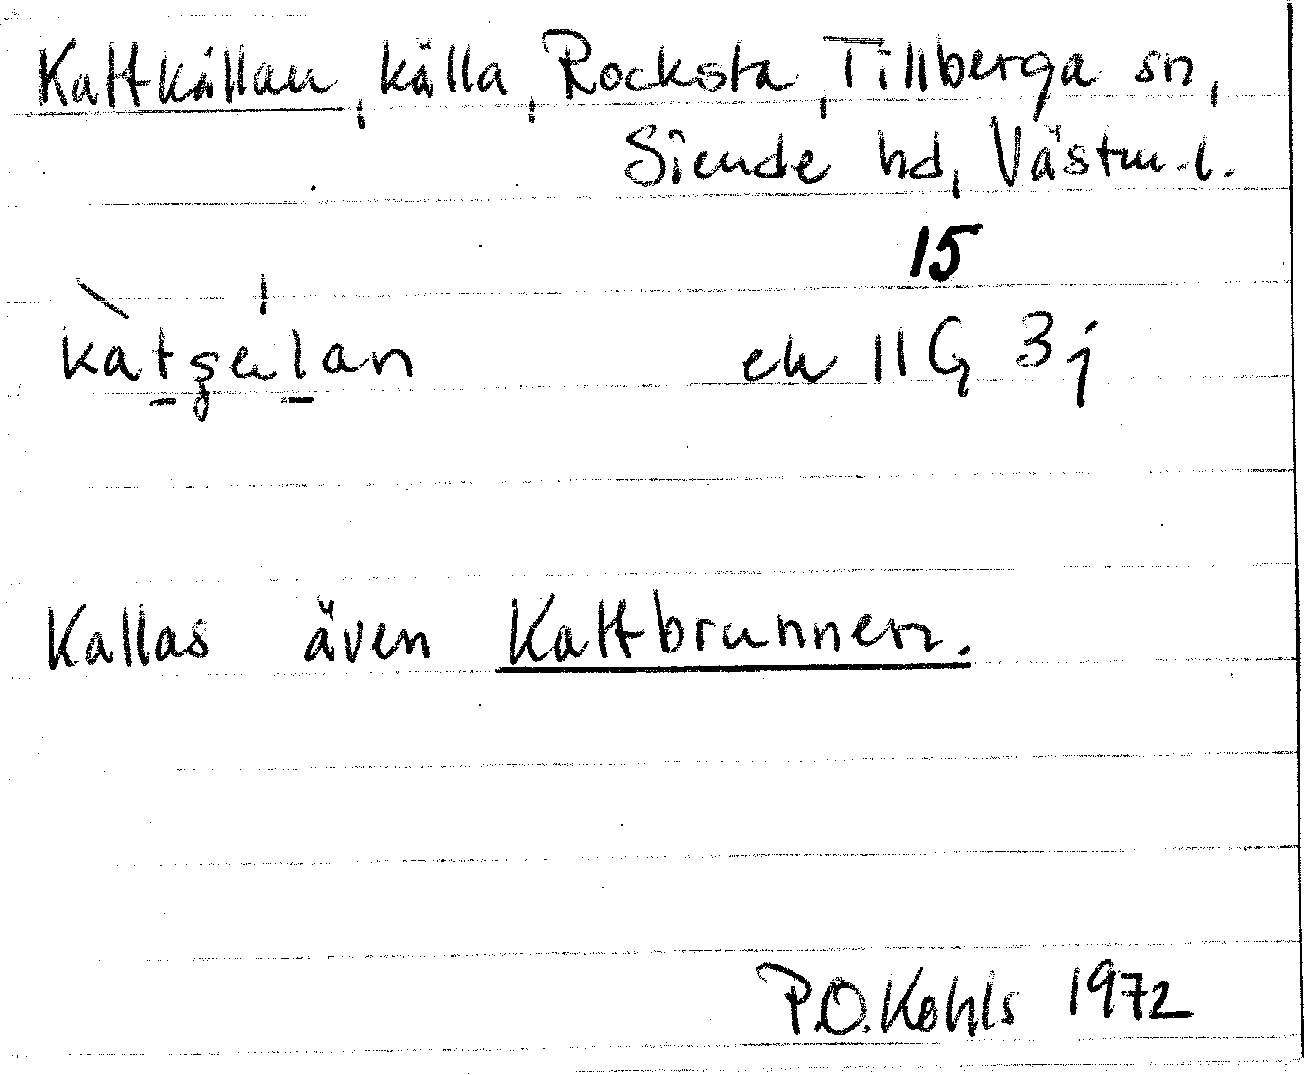 Kattkällan, källa, Rocksta, Tillberga sn,
Siende hd, Västm. l.
15
katşęlan ek 11G 3j
Kallas även Kattbrunnen.
P.O. Kohls 1972